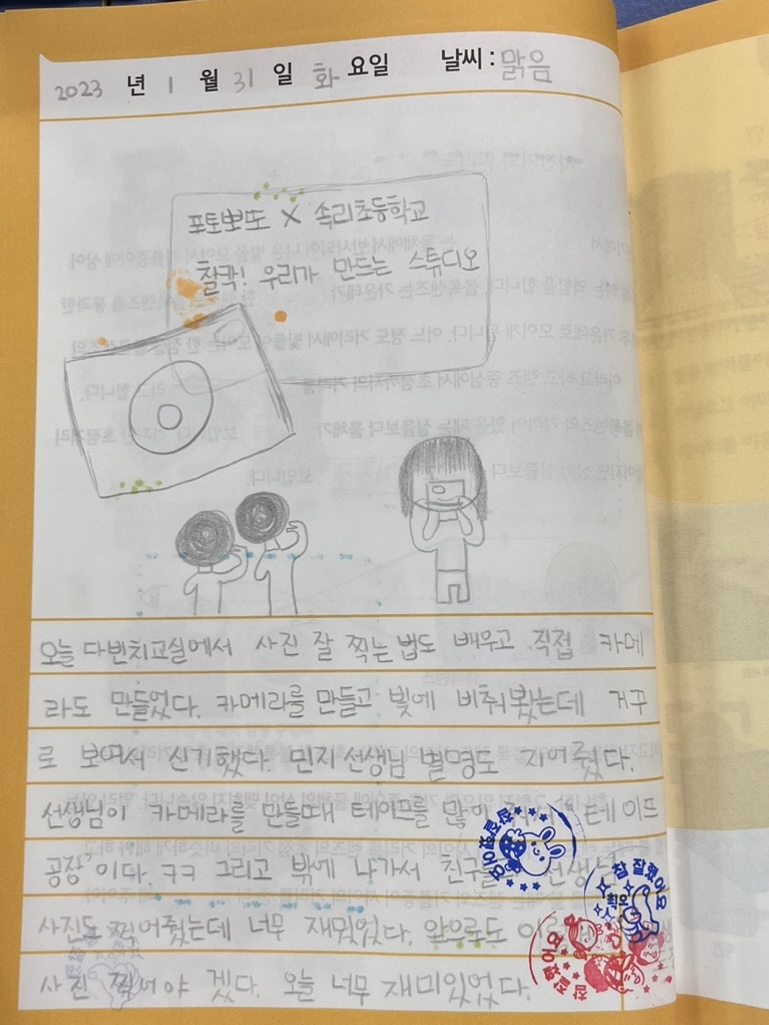 2023 년 1 월 31 일 화 요일 날씨 : 맑음
포토뽀또 X 속리초등학교
찰칵! 우리가 만드는 스튜디오
오늘 다빈치교실에서 사진 잘 찍는 법도 배우고 직접 카메
라도 만들었다. 카메라를 만들고 빛에 비춰봤는데 거꾸
로 보여서 신기했다. 민지선생님 별명도 지어줬다.
선생님이 카메라를 만들때 테이프를 많이 테이프
공장'이다. ㅋㅋ 그리고 밖에 나가서 친구들 선생님
사진도 찍어줬는데 너무 재밌었다. 앞으로도
사진 찍어야 겠다. 오늘 너무 재미있었다.
참 잘했어요
최우
참 잘했어요